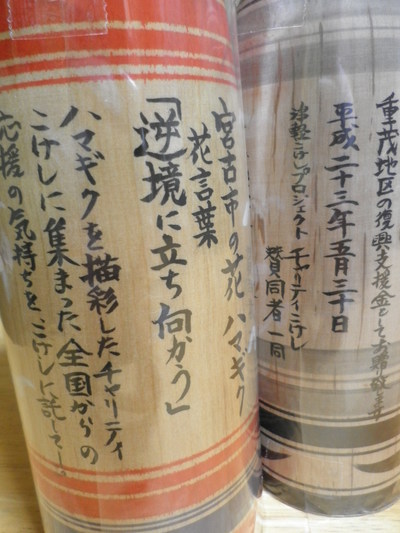 宮古市の花 ハマギク
花言葉
「逆境に立ち向かう」
ハマギクを描彩したチャリティ
こけしに集まった全国からの
応援の気持ちをこけしに託して…。
重茂地区の復興支援金として寄附致します
平成二十三年五月三十日
津軽こけしプロジェクト チャリティこけし
賛同者一同